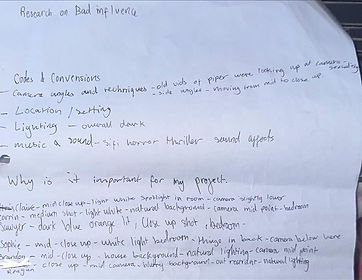 Research on Bad influence
Codes & Convensions
- Camera angles and techniques - old vids of piper were looking up at camera
- side angles - moving from mid to close up
- Location / setting
- Lighting - overall dark
- music & sound - sifi horror thriller sound affects
Why is it important for my project.
Claire - mid close up - light white spotlight in room - camera slightly lower
- medium shot - light white - natural background - camera mid point - bedroom
Sawyer - dark blue orange lit, Close up shot, bedroom -
Sophie - mid - close up - white light bedroom, things in back - camera below
- mid - close up - home background - natural lighting - camera mid point
- close up - mid camera - blurry background - natural lighting